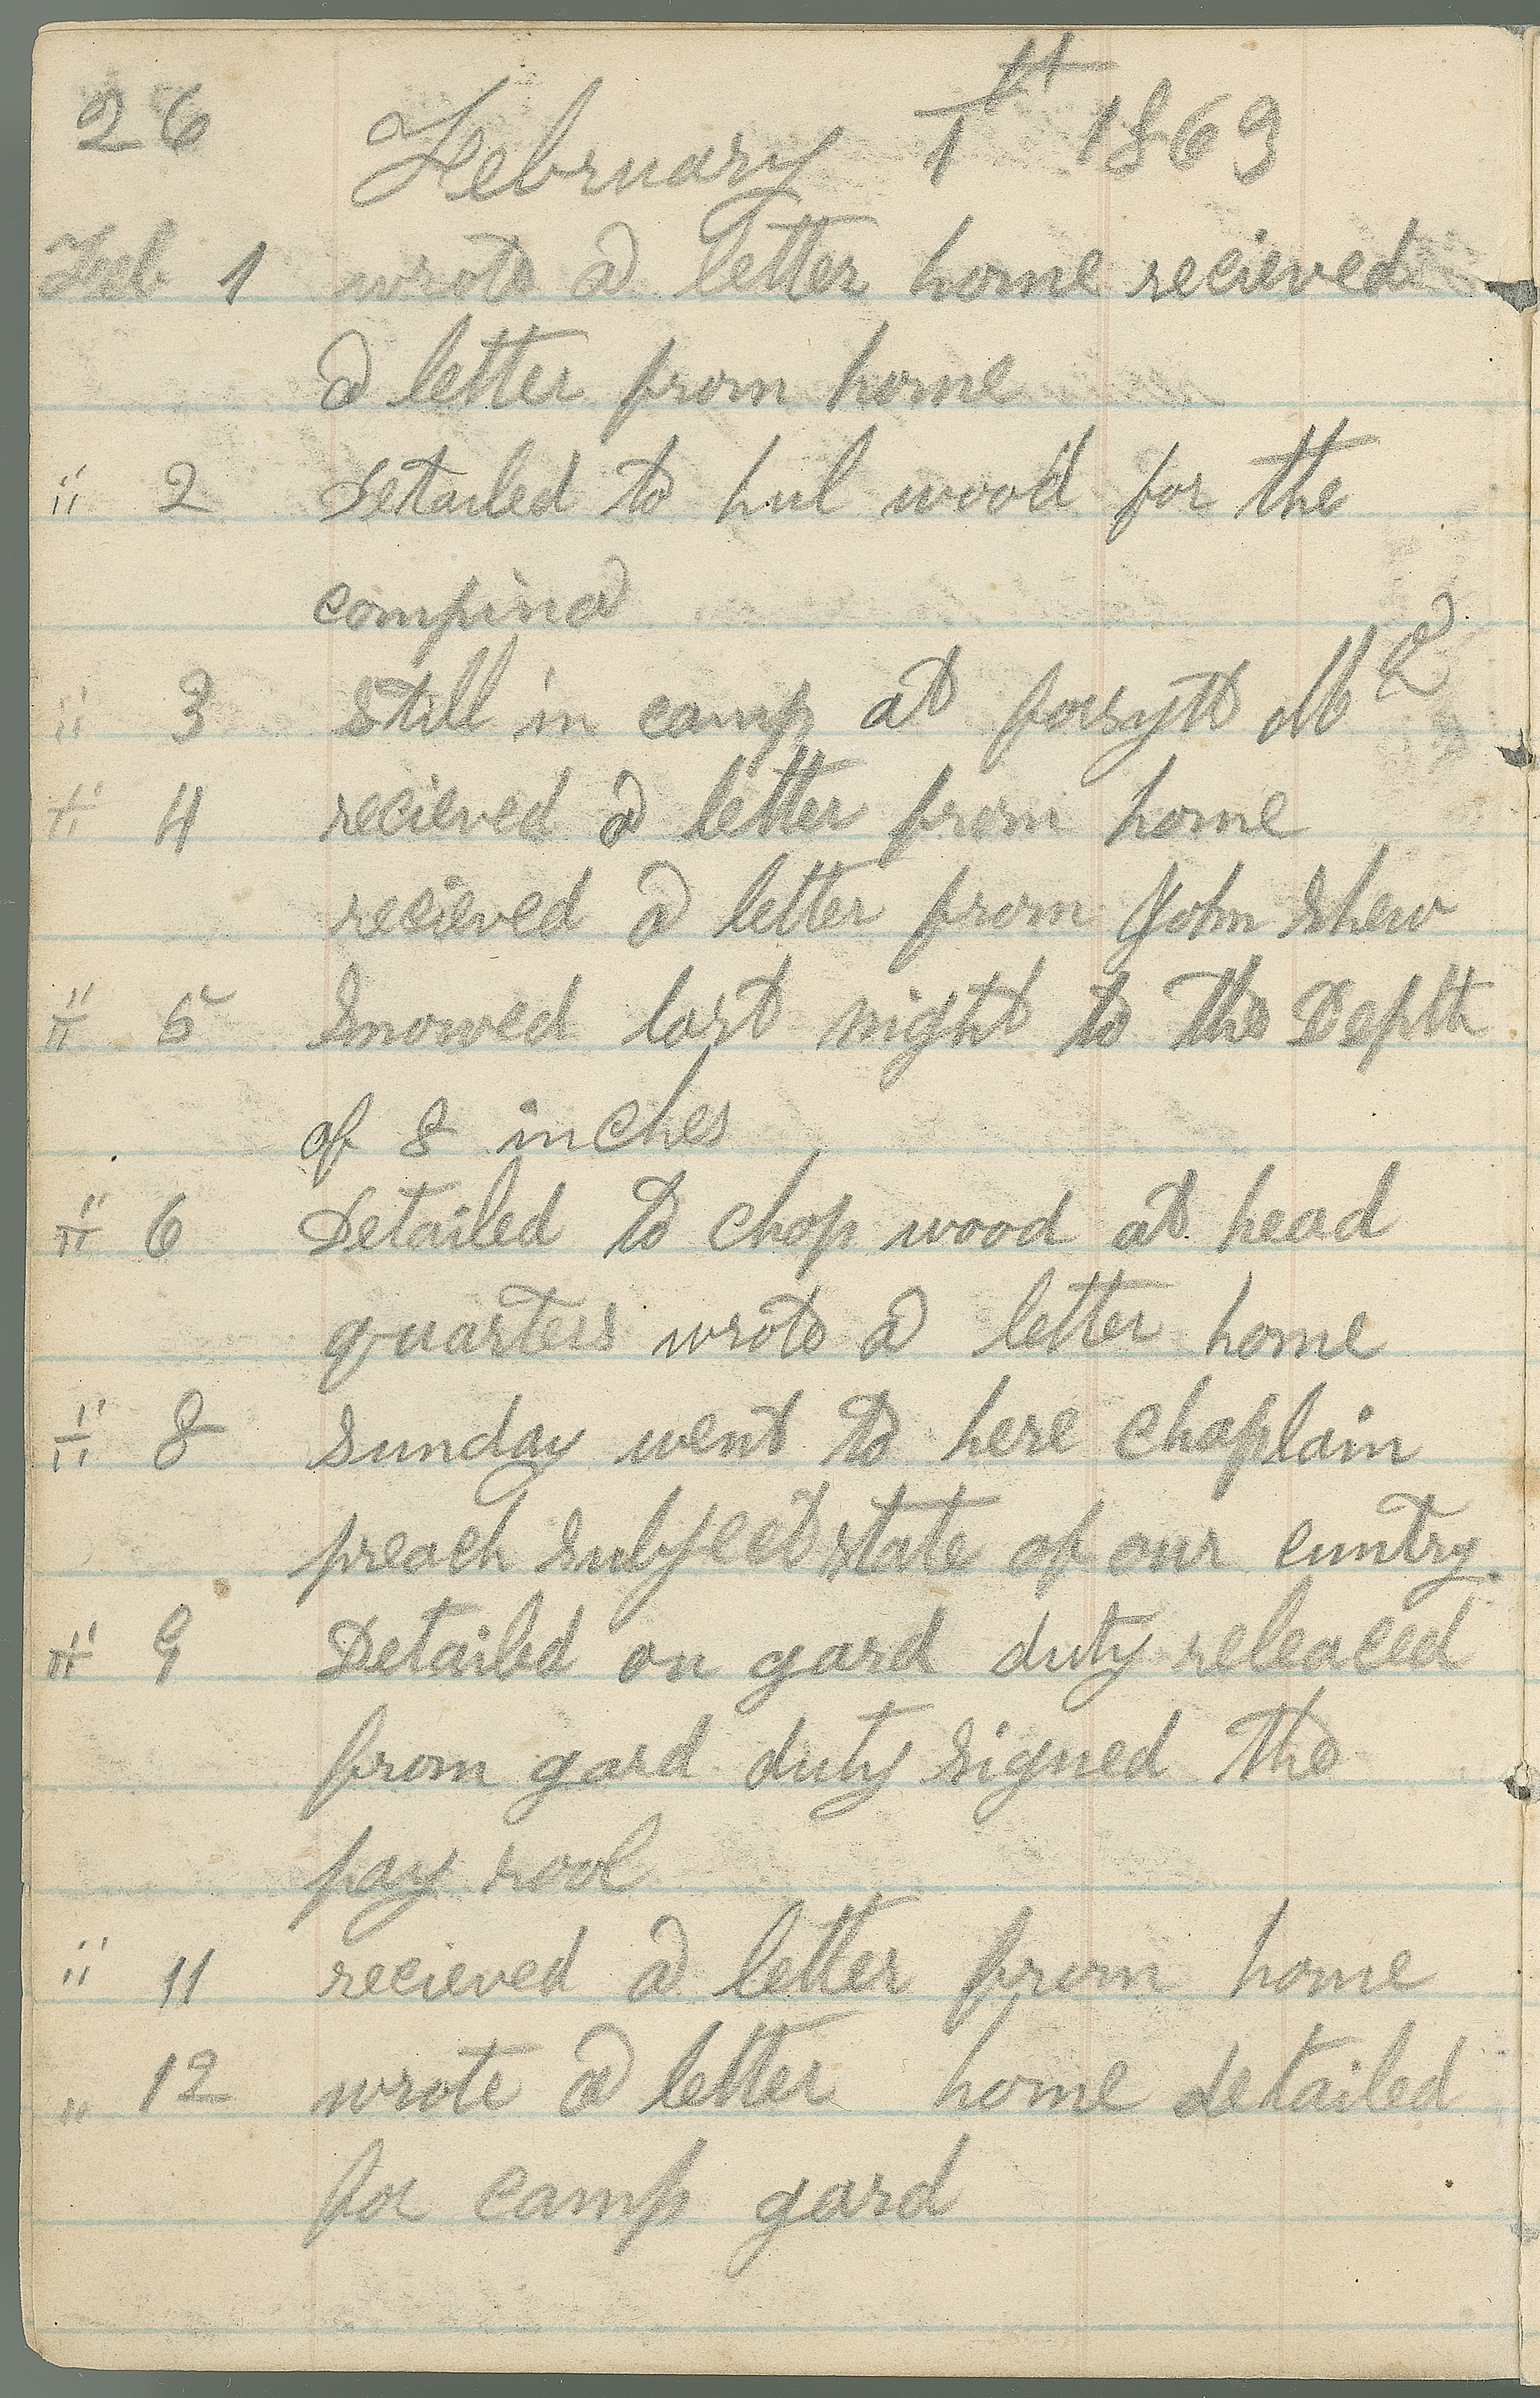 26 February 1st 1863
Feb 1 wrote a letter home recieved
a letter from home
" 2 Detailed to hul wood for the
compina
" 3 Still in camp at forsyth Mo
" 4 recieved a letter from home
recieved a letter from John Shew
" 5 Snowed last night to the Depth
of 8 inches
" 6 Detailed to chop wood at head
quarters wrote a letter home
" 8 Sunday went to here chaplain
preach Subject state of our cuntry.
" 9 Detailed on gard duty releaced
from gard duty signed the
pay rool
" 11 recieved a letter from home
" 12 wrote a letter home detailed
for camp gard